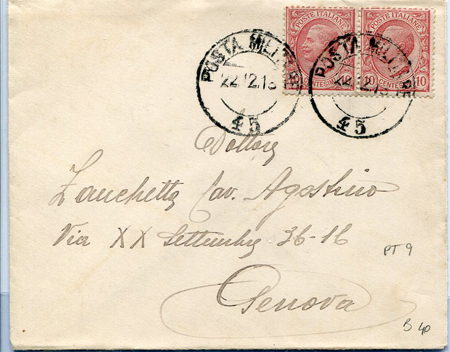 POSTE ITALIANE POSTE ITALIANE
10 CENTES 10 10 CENTES 10
POSTA MILITARE POSTA MILITARE
22.12.15
45 45
Dottore
Zanchetta Cav. Agostino
Via XX Settembre 36-16
PT 9
Genova
B 40